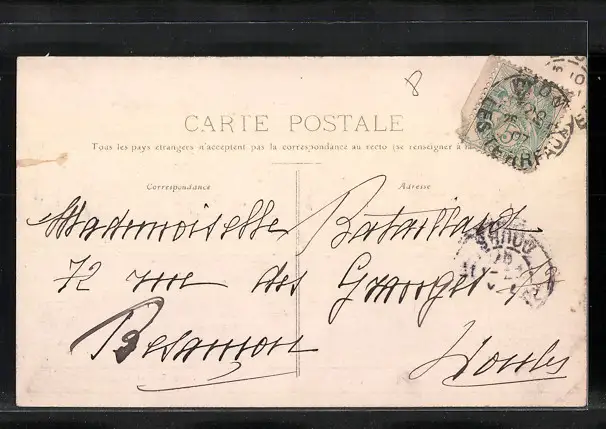 8
CARTE POSTALE
Tous les pays étrangers n'acceptent pas la correspondance au recto (se renseigner à la
Correspondance
Adresse
Mademoiselle Bataillard
72 rue des Granges 72
Besançon
Doubs